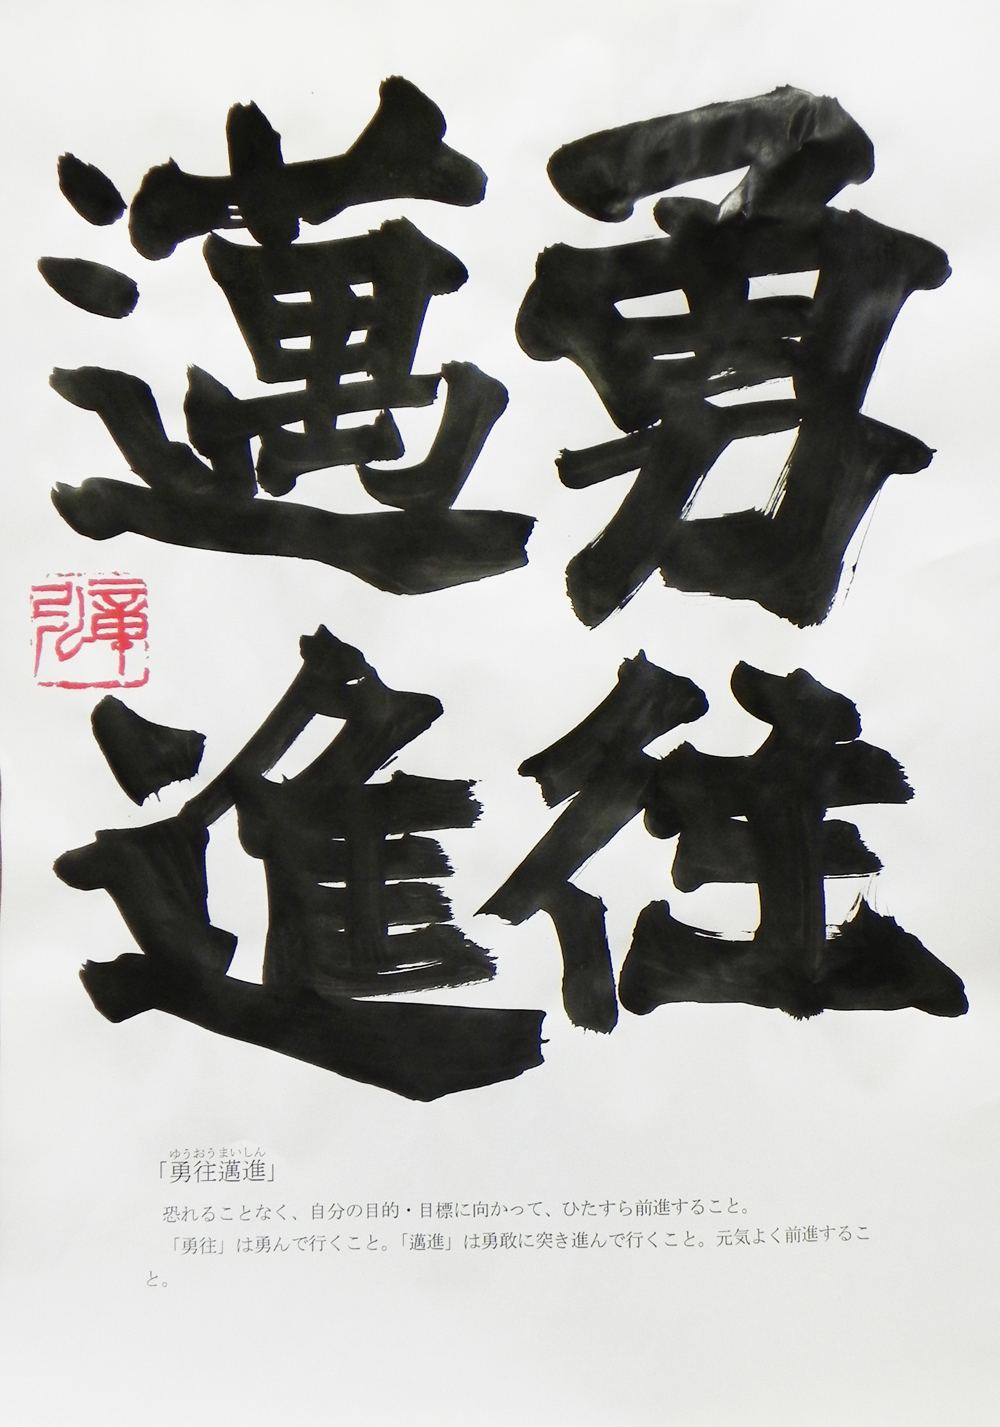 勇往
邁進
ゆうおうまいしん
「勇往邁進」
恐れることなく、自分の目的・目標に向かって、ひたすら前進すること。
「勇往」は勇んで行くこと。「邁進」は勇敢に突き進んで行くこと。元気よく前進するこ
と。